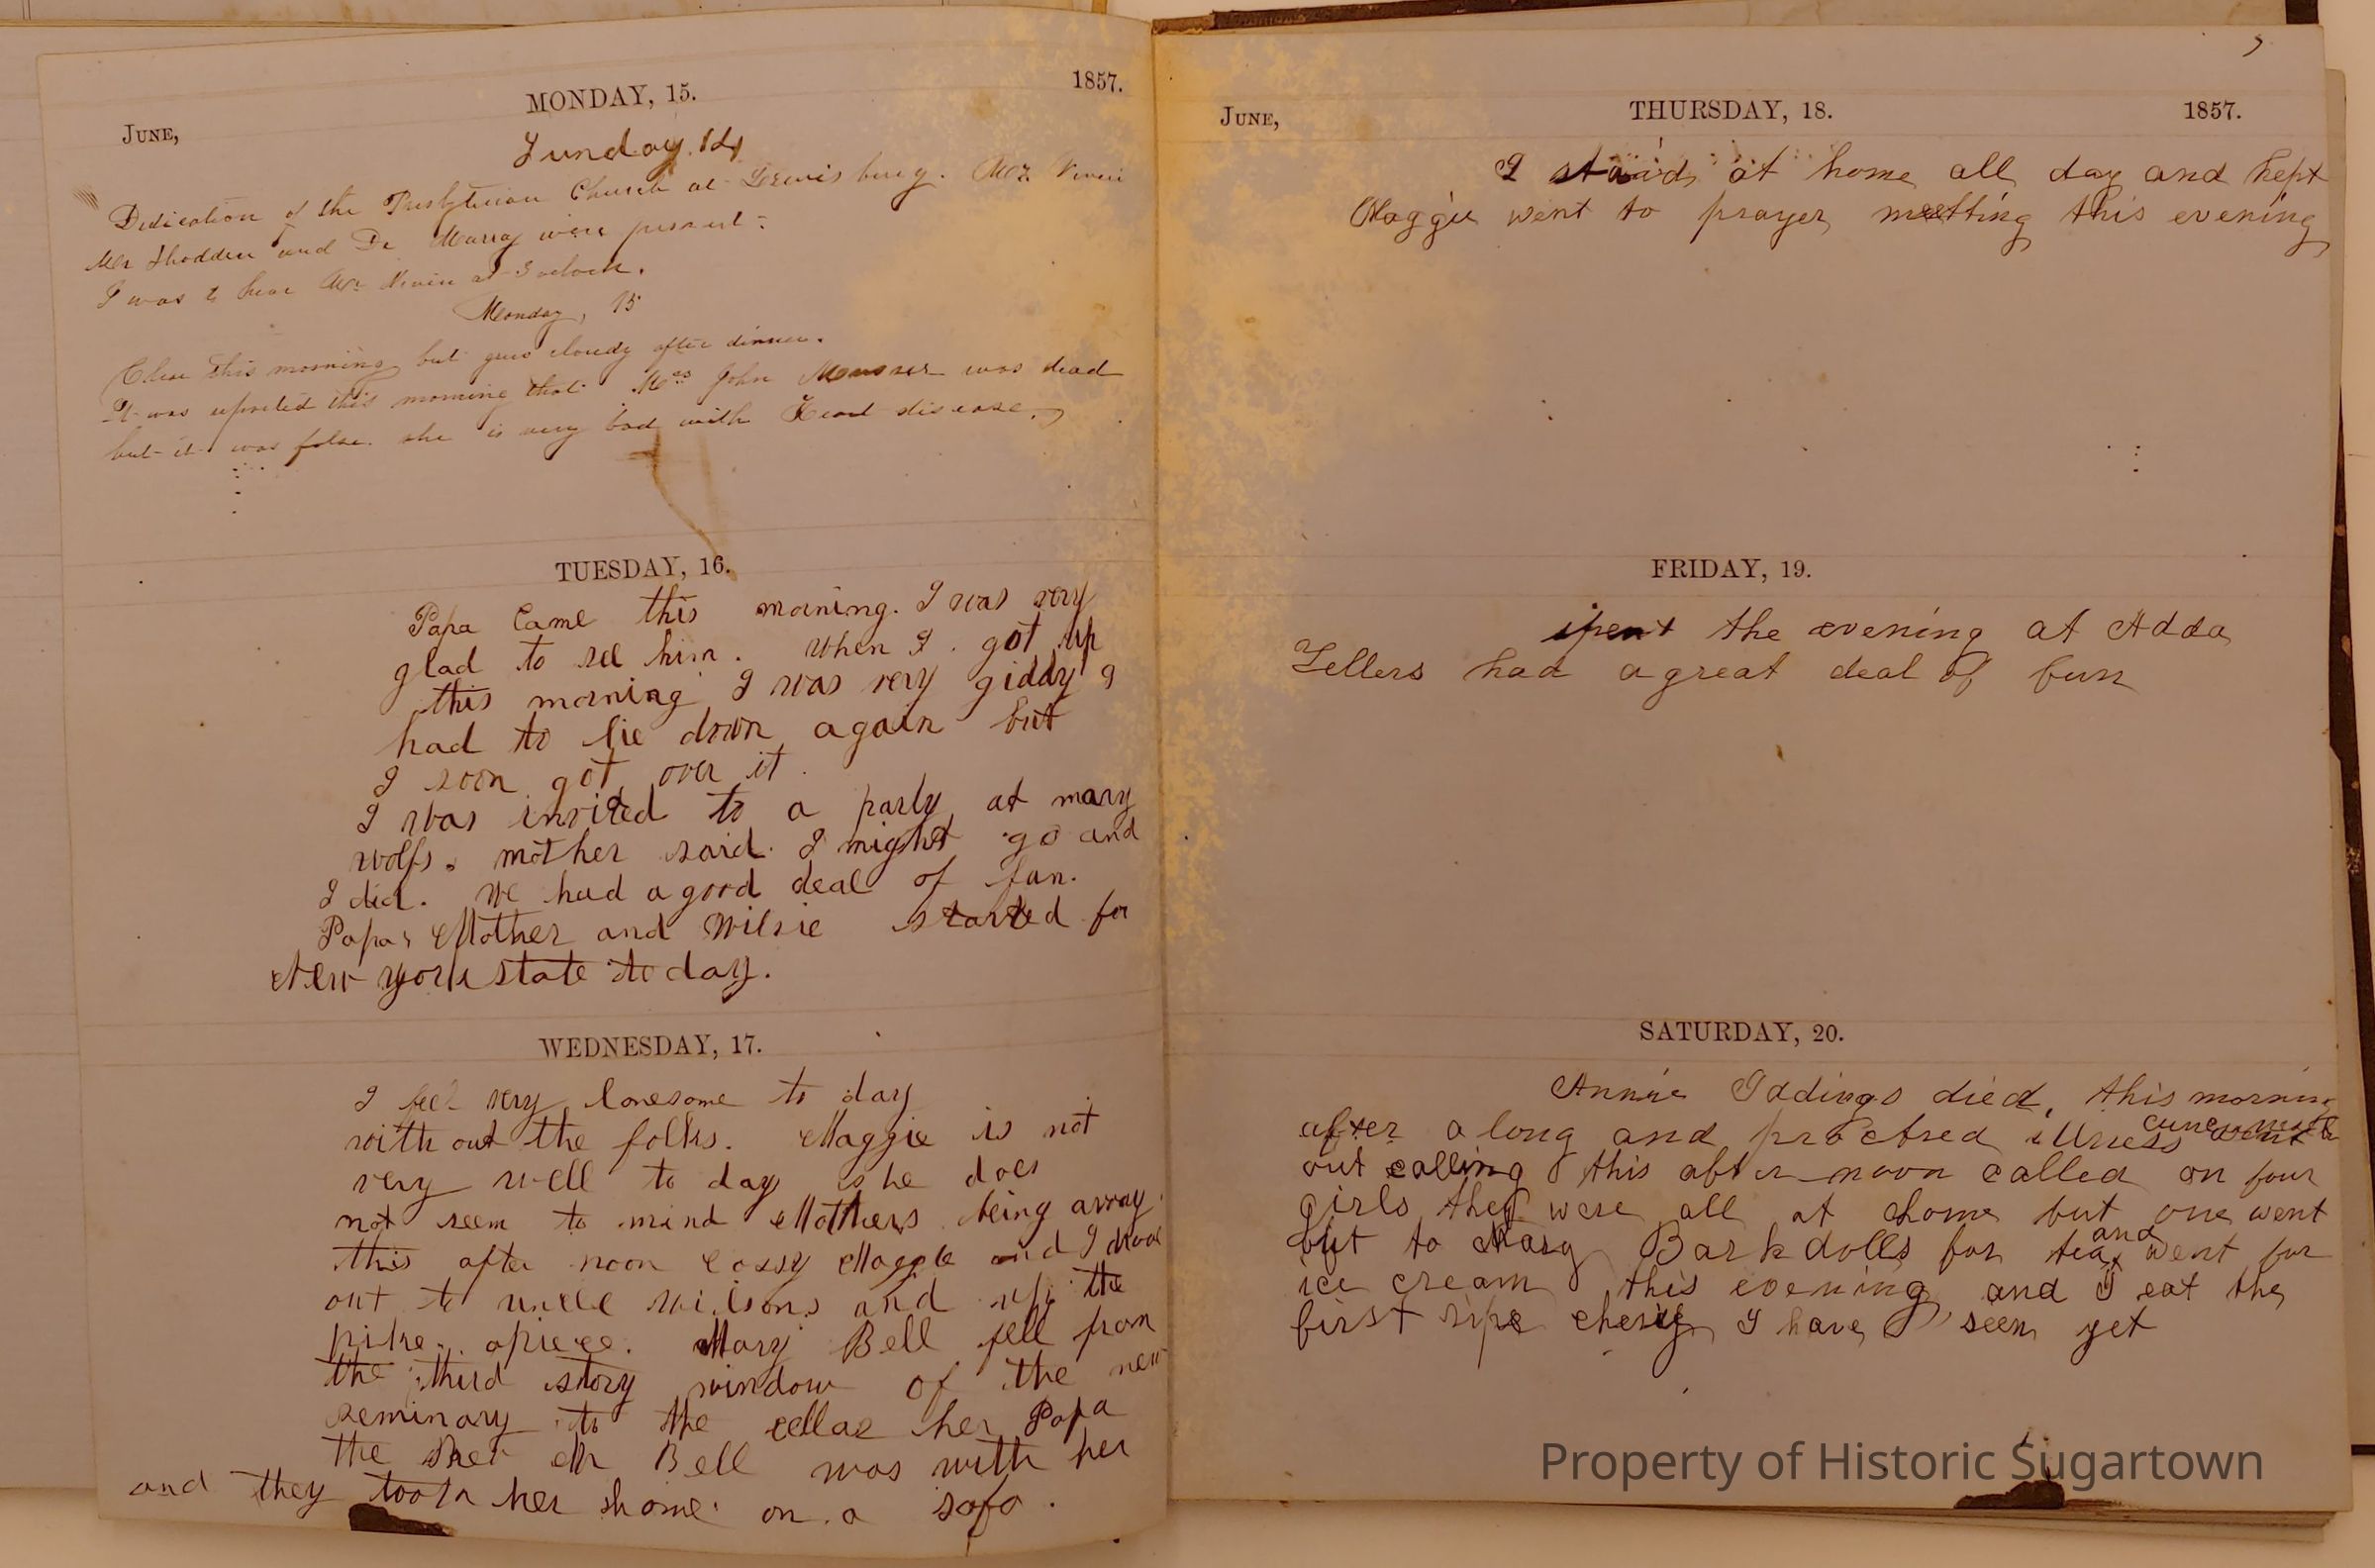 MONDAY, 15.
June, 1857.
Sunday. 14
Dedication of the Presbyterian Church at Lewisburg. Mr. Nevin
Mr Shodden and Dr Murray were present.
I was to hear Mr. Nevin at 3 oclock.
Monday, 15
Clear this morning but grew cloudy after dinner.
It was reported this morning that Mrs John Musser was dead
but it was false. she is very bad with Heart disease.
TUESDAY, 16.
Papa Came this morning. I was very
glad to see him. When I got up
this morning I was very giddy I
had to lie down again but
I soon got over it.
I was invited to a party at mary
wolfs. mother said I might go and
I did. We had a good deal of fun.
Papa, Mother and Wilsie started for
New york state to day.
WEDNESDAY, 17.
I feel very lonesome to day
with out the folks. Maggie is not
very well to day she does
not seem to mind Mothers being away
this after noon Cassy Maggie and I drove
out to uncle wilsons and up the
pike. apiece. Mary Bell fell from
the third story window of the new
seminary to the cellar her Papa
the Rev Mr Bell was with her
and they took her home on a sofa.
June, THURSDAY, 18. 1857.
I staid at home all day and kept
Maggie went to prayer meetting this evening
FRIDAY, 19.
spent the evening at Adda
Zellers had a great deal of fun
SATURDAY, 20.
Annie Iddings died, this morning
after a long and illness went
out calling this after noon called on four
girls they were all at home but one went
out to Mary Barkdolls for tea and went for
ice cream this evening and I eat the
first ripe chery I have seen yet
Property of Historic Sugartown